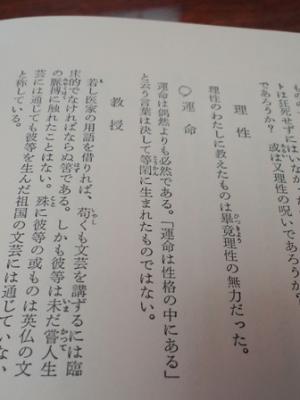 トは狂死せずにはいなかった
であろうか？　或は又理性の呪いであろうか
理性
理性のわたしに教えたものは畢竟理性の無力だった。
運命
運命は偶然よりも必然である。「運命は性格の中にある」
と云う言葉は決して等閑に生まれたものではない。
教授
若し医家の用語を借りれば、苟くも文芸を講ずるには臨
床的でなければならぬ筈である。しかも彼等は未だ嘗人生
の脈搏に触れたことはない。殊に彼等の或ものは英仏の文
芸には通じても彼等を生んだ祖国の文芸には通じていない
と称している。